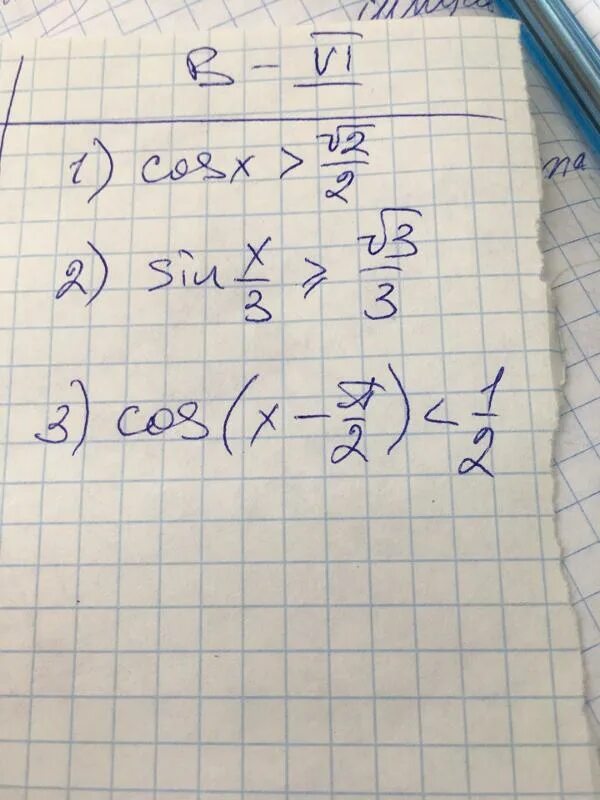 В - VI
1) cosx > √2/2
2) sin x/3 ⩾ √3/3
3) cos(x - π/2) < 1/2